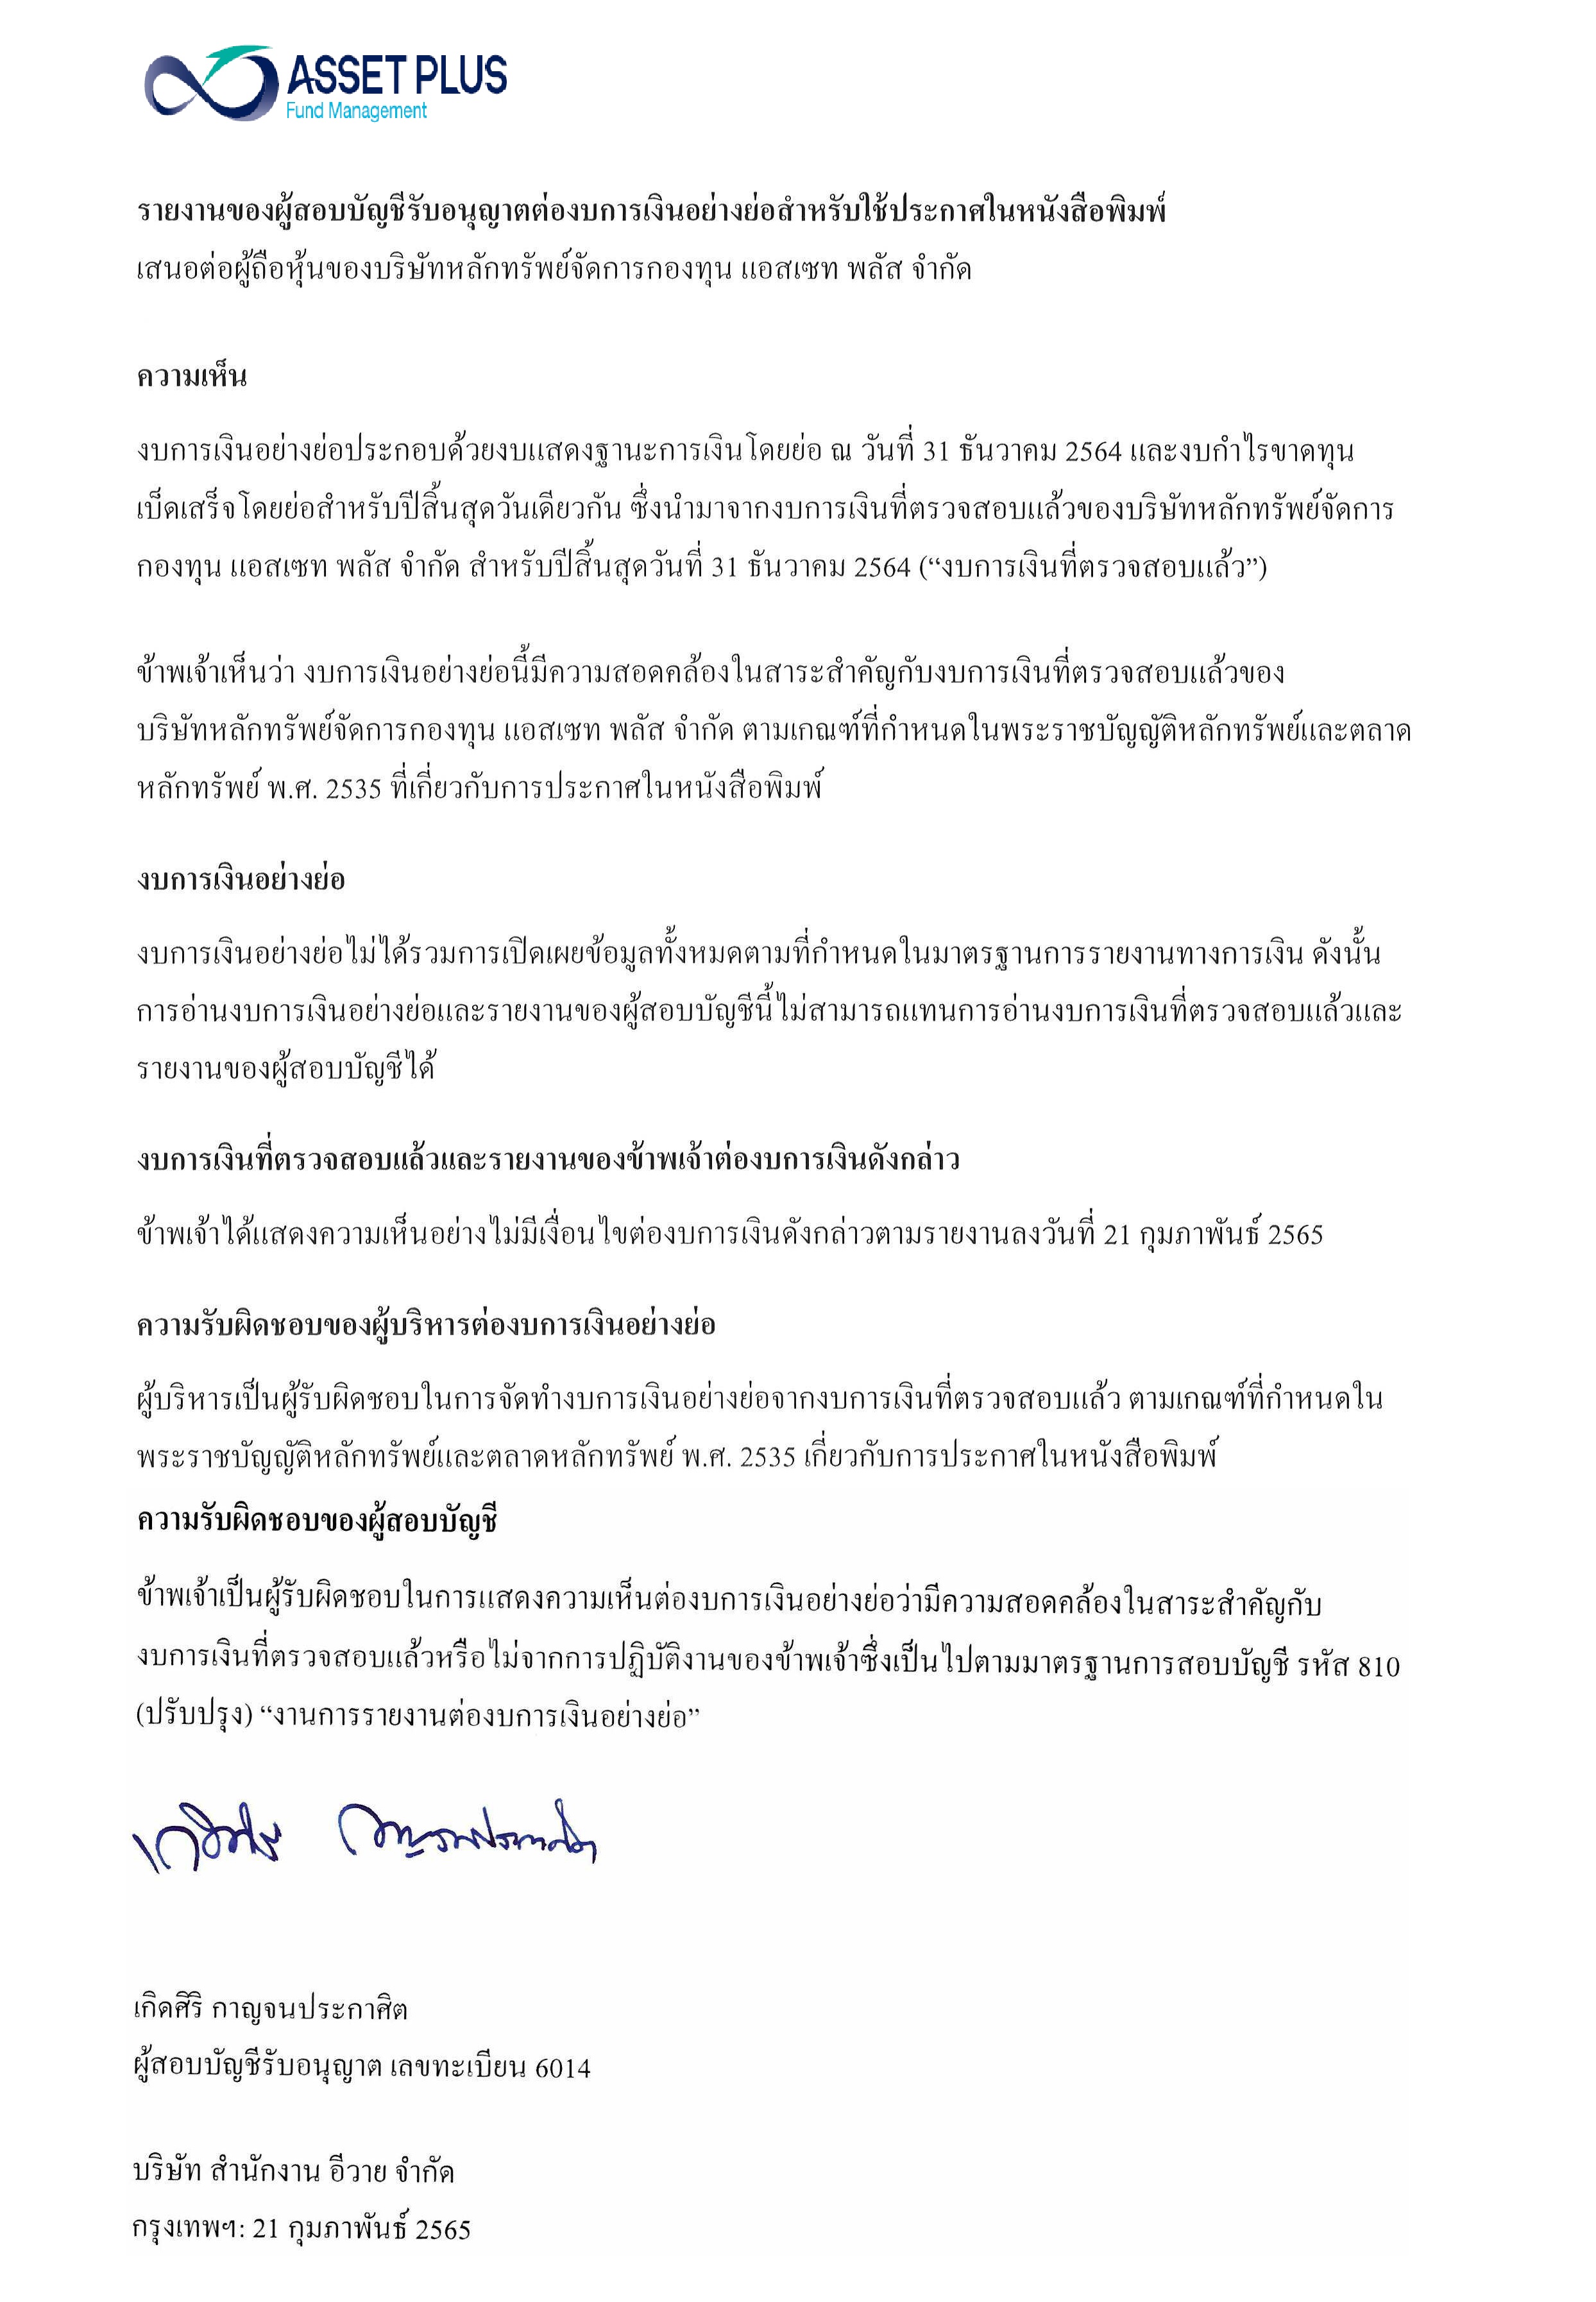 ASSET PLUS
Fund Management
รายงานของผู้สอบบัญชีรับอนุญาตต่องบการเงินอย่างย่อสำหรับใช้ประกาศในหนังสือพิมพ์
เสนอต่อผู้ถือหุ้นของบริษัทหลักทรัพย์จัดการกองทุน แอสเซท พลัส จำกัด
ความเห็น
งบการเงินอย่างย่อประกอบด้วยงบแสดงฐานะการเงินโดยย่อ ณ วันที่ 31 ธันวาคม 2564 และงบกำไรขาดทุน
เบ็ดเสร็จโดยย่อสำหรับปีสิ้นสุดวันเดียวกัน ซึ่งนำมาจากงบการเงินที่ตรวจสอบแล้วของบริษัทหลักทรัพย์จัดการ
กองทุน แอสเซท พลัส จำกัด สำหรับปีสิ้นสุดวันที่ 31 ธันวาคม 2564 (“งบการเงินที่ตรวจสอบแล้ว”)
ข้าพเจ้าเห็นว่า งบการเงินอย่างย่อนี้มีความสอดคล้องในสาระสำคัญกับงบการเงินที่ตรวจสอบแล้วของ
บริษัทหลักทรัพย์จัดการกองทุน แอสเซท พลัส จำกัด ตามเกณฑ์ที่กำหนดในพระราชบัญญัติหลักทรัพย์และตลาด
หลักทรัพย์ พ.ศ. 2535 ที่เกี่ยวกับการประกาศในหนังสือพิมพ์
งบการเงินอย่างย่อ
งบการเงินอย่างย่อไม่ได้รวมการเปิดเผยข้อมูลทั้งหมดตามที่กำหนดในมาตรฐานการรายงานทางการเงิน ดังนั้น
การอ่านงบการเงินอย่างย่อและรายงานของผู้สอบบัญชีนี้ไม่สามารถแทนการอ่านงบการเงินที่ตรวจสอบแล้วและ
รายงานของผู้สอบบัญชีได้
งบการเงินที่ตรวจสอบแล้วและรายงานของข้าพเจ้าต่องบการเงินดังกล่าว
ข้าพเจ้าได้แสดงความเห็นอย่างไม่มีเงื่อนไขต่องบการเงินดังกล่าวตามรายงานลงวันที่ 21 กุมภาพันธ์ 2565
ความรับผิดชอบของผู้บริหารต่องบการเงินอย่างย่อ
ผู้บริหารเป็นผู้รับผิดชอบในการจัดทำงบการเงินอย่างย่อจากงบการเงินที่ตรวจสอบแล้ว ตามเกณฑ์ที่กำหนดใน
พระราชบัญญัติหลักทรัพย์และตลาดหลักทรัพย์ พ.ศ. 2535 เกี่ยวกับการประกาศในหนังสือพิมพ์
ความรับผิดชอบของผู้สอบบัญชี
ข้าพเจ้าเป็นผู้รับผิดชอบในการแสดงความเห็นต่องบการเงินอย่างย่อว่ามีความสอดคล้องในสาระสำคัญกับ
งบการเงินที่ตรวจสอบแล้วหรือไม่จากการปฏิบัติงานของข้าพเจ้าซึ่งเป็นไปตามมาตรฐานการสอบบัญชี รหัส 810
(ปรับปรุง) “งานการรายงานต่องบการเงินอย่างย่อ”
เกิดศิริ กาญจนประกาศิต
ผู้สอบบัญชีรับอนุญาต เลขทะเบียน 6014
บริษัท สำนักงาน อีวาย จำกัด
กรุงเทพฯ: 21 กุมภาพันธ์ 2565